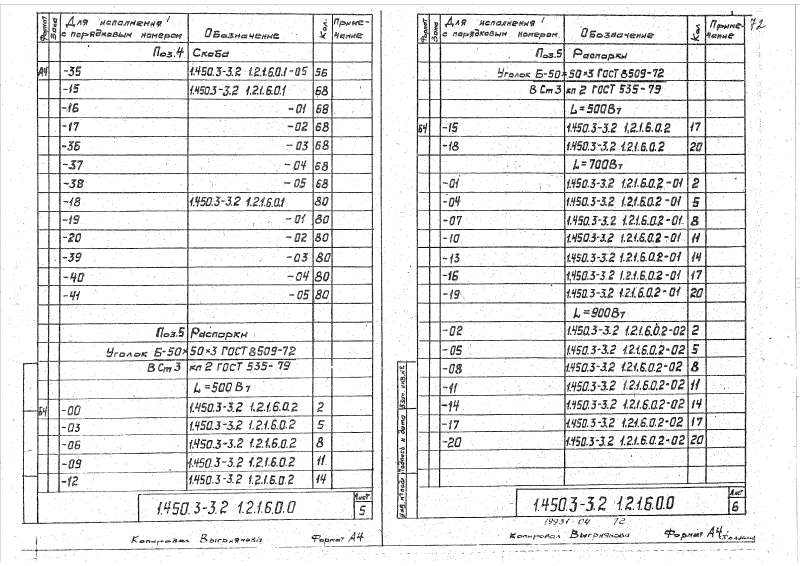 Формат
Зона
Для исполнения
с порядковым номером
Обозначение
Кол.
Приме-
чание
Поз.4 Скоба
А4 -35 1.450.3-3.2 1.2.1.6.0.1-05 56
-15 1.450.3-3.2 1.2.1.6.0.1 68
-16 -01 68
-17 -02 68
-36 -03 68
-37 -04 68
-38 -05 68
-18 1.450.3-3.2 1.2.1.6.0.1 80
-19 -01 80
-20 -02 80
-39 -03 80
-40 -04 80
-41 -05 80
Поз.5 Распорки
Уголок Б-50×50×3 ГОСТ 8509-72
В Ст 3 кп 2 ГОСТ 535-79
L=500 Вт
Б4 -00 1.450.3-3.2 1.2.1.6.0.2 2
-03 1.450.3-3.2 1.2.1.6.0.2 5
-06 1.450.3-3.2 1.2.1.6.0.2 8
-09 1.450.3-3.2 1.2.1.6.0.2 11
-12 1.450.3-3.2 1.2.1.6.0.2 14
1.450.3-3.2 1.2.1.6.0.0
Лист
5
Копировал Выгриянова Формат А4
72
Формат
Зона
Для исполнения
с порядковым номером
Обозначение
Кол.
Приме-
чание
Поз.5 Распорки
Уголок Б-50×50×3 ГОСТ 8509-72
В Ст 3 кп 2 ГОСТ 535-79
L=500Вт
Б4 -15 1.450.3-3.2 1.2.1.6.0.2 17
-18 1.450.3-3.2 1.2.1.6.0.2 20
L=700Вт
-01 1.450.3-3.2 1.2.1.6.0.2-01 2
-04 1.450.3-3.2 1.2.1.6.0.2-01 5
-07 1.450.3-3.2 1.2.1.6.0.2-01 8
-10 1.450.3-3.2 1.2.1.6.0.2-01 11
-13 1.450.3-3.2 1.2.1.6.0.2-01 14
-16 1.450.3-3.2 1.2.1.6.0.2-01 17
-19 1.450.3-3.2 1.2.1.6.0.2-01 20
L=900Вт
-02 1.450.3-3.2 1.2.1.6.0.2-02 2
-05 1.450.3-3.2 1.2.1.6.0.2-02 5
-08 1.450.3-3.2 1.2.1.6.0.2-02 8
-11 1.450.3-3.2 1.2.1.6.0.2-02 11
-14 1.450.3-3.2 1.2.1.6.0.2-02 14
-17 1.450.3-3.2 1.2.1.6.0.2-02 17
-20 1.450.3-3.2 1.2.1.6.0.2-02 20
Взам. инв. №
Подпись и дата
Инв. № подл.
1.450.3-3.2 1.2.1.6.0.0
Лист
6
19931-04 72
Копировал Выгрнянова Формат А4